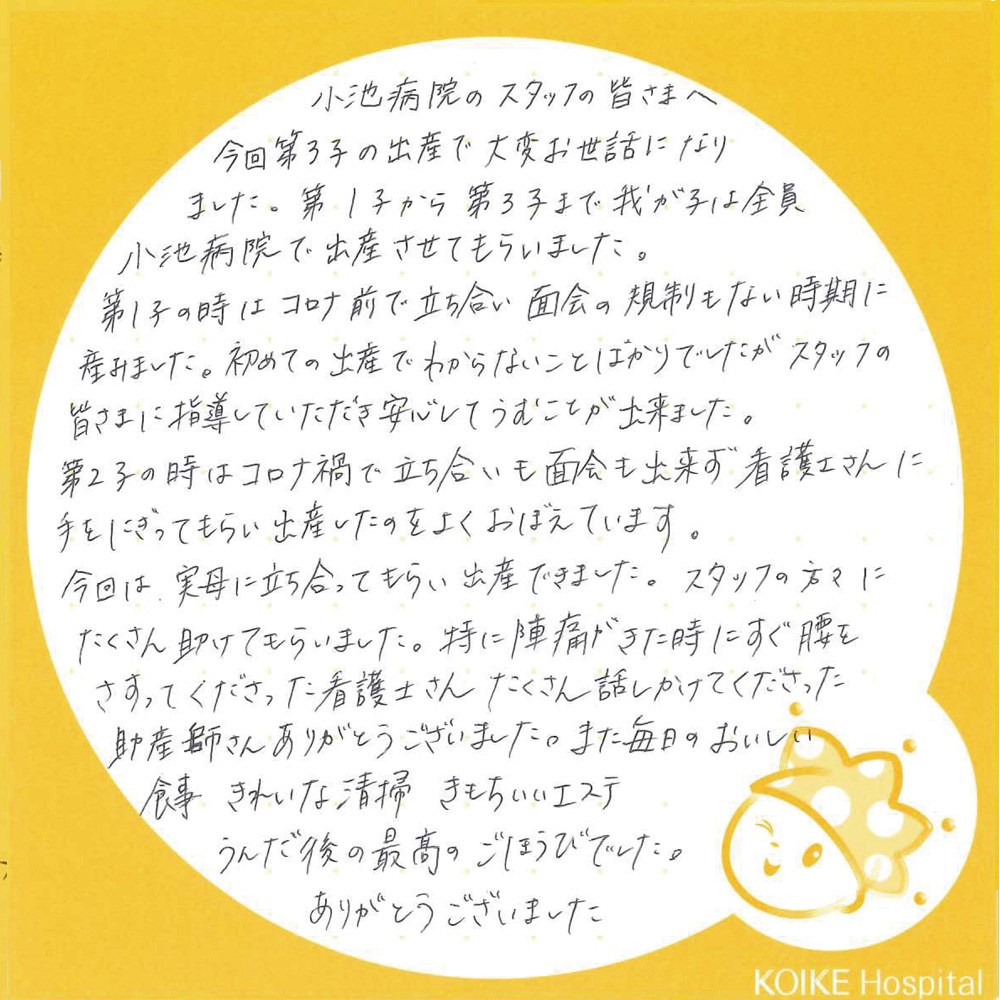 小池病院のスタッフの皆さまへ
今回第3子の出産で大変お世話になり
ました。第1子から第3子まで我が子は全員
小池病院で出産させてもらいました。
第1子の時はコロナ前で立ち合い面会の規制もない時期に
産みました。初めての出産でわからないことばかりでしたがスタッフの
皆さまに指導していただき安心してうむことが出来ました。
第2子の時はコロナ禍で立ち合いも面会も出来ず看護士さんに
手をにぎってもらい出産したのをよくおぼえています。
今回は、実母に立ち合ってもらい出産できました。スタッフの方々に
たくさん助けてもらいました。特に陣痛がきた時にすぐ腰を
さすってくださった看護士さんたくさん話しかけてくださった
助産師さんありがとうございました。また毎日のおいしい
食事 きれいな清掃 きもちいいエステ
うんだ後の最高のごほうびでした。
ありがとうございました
KOIKE Hospital